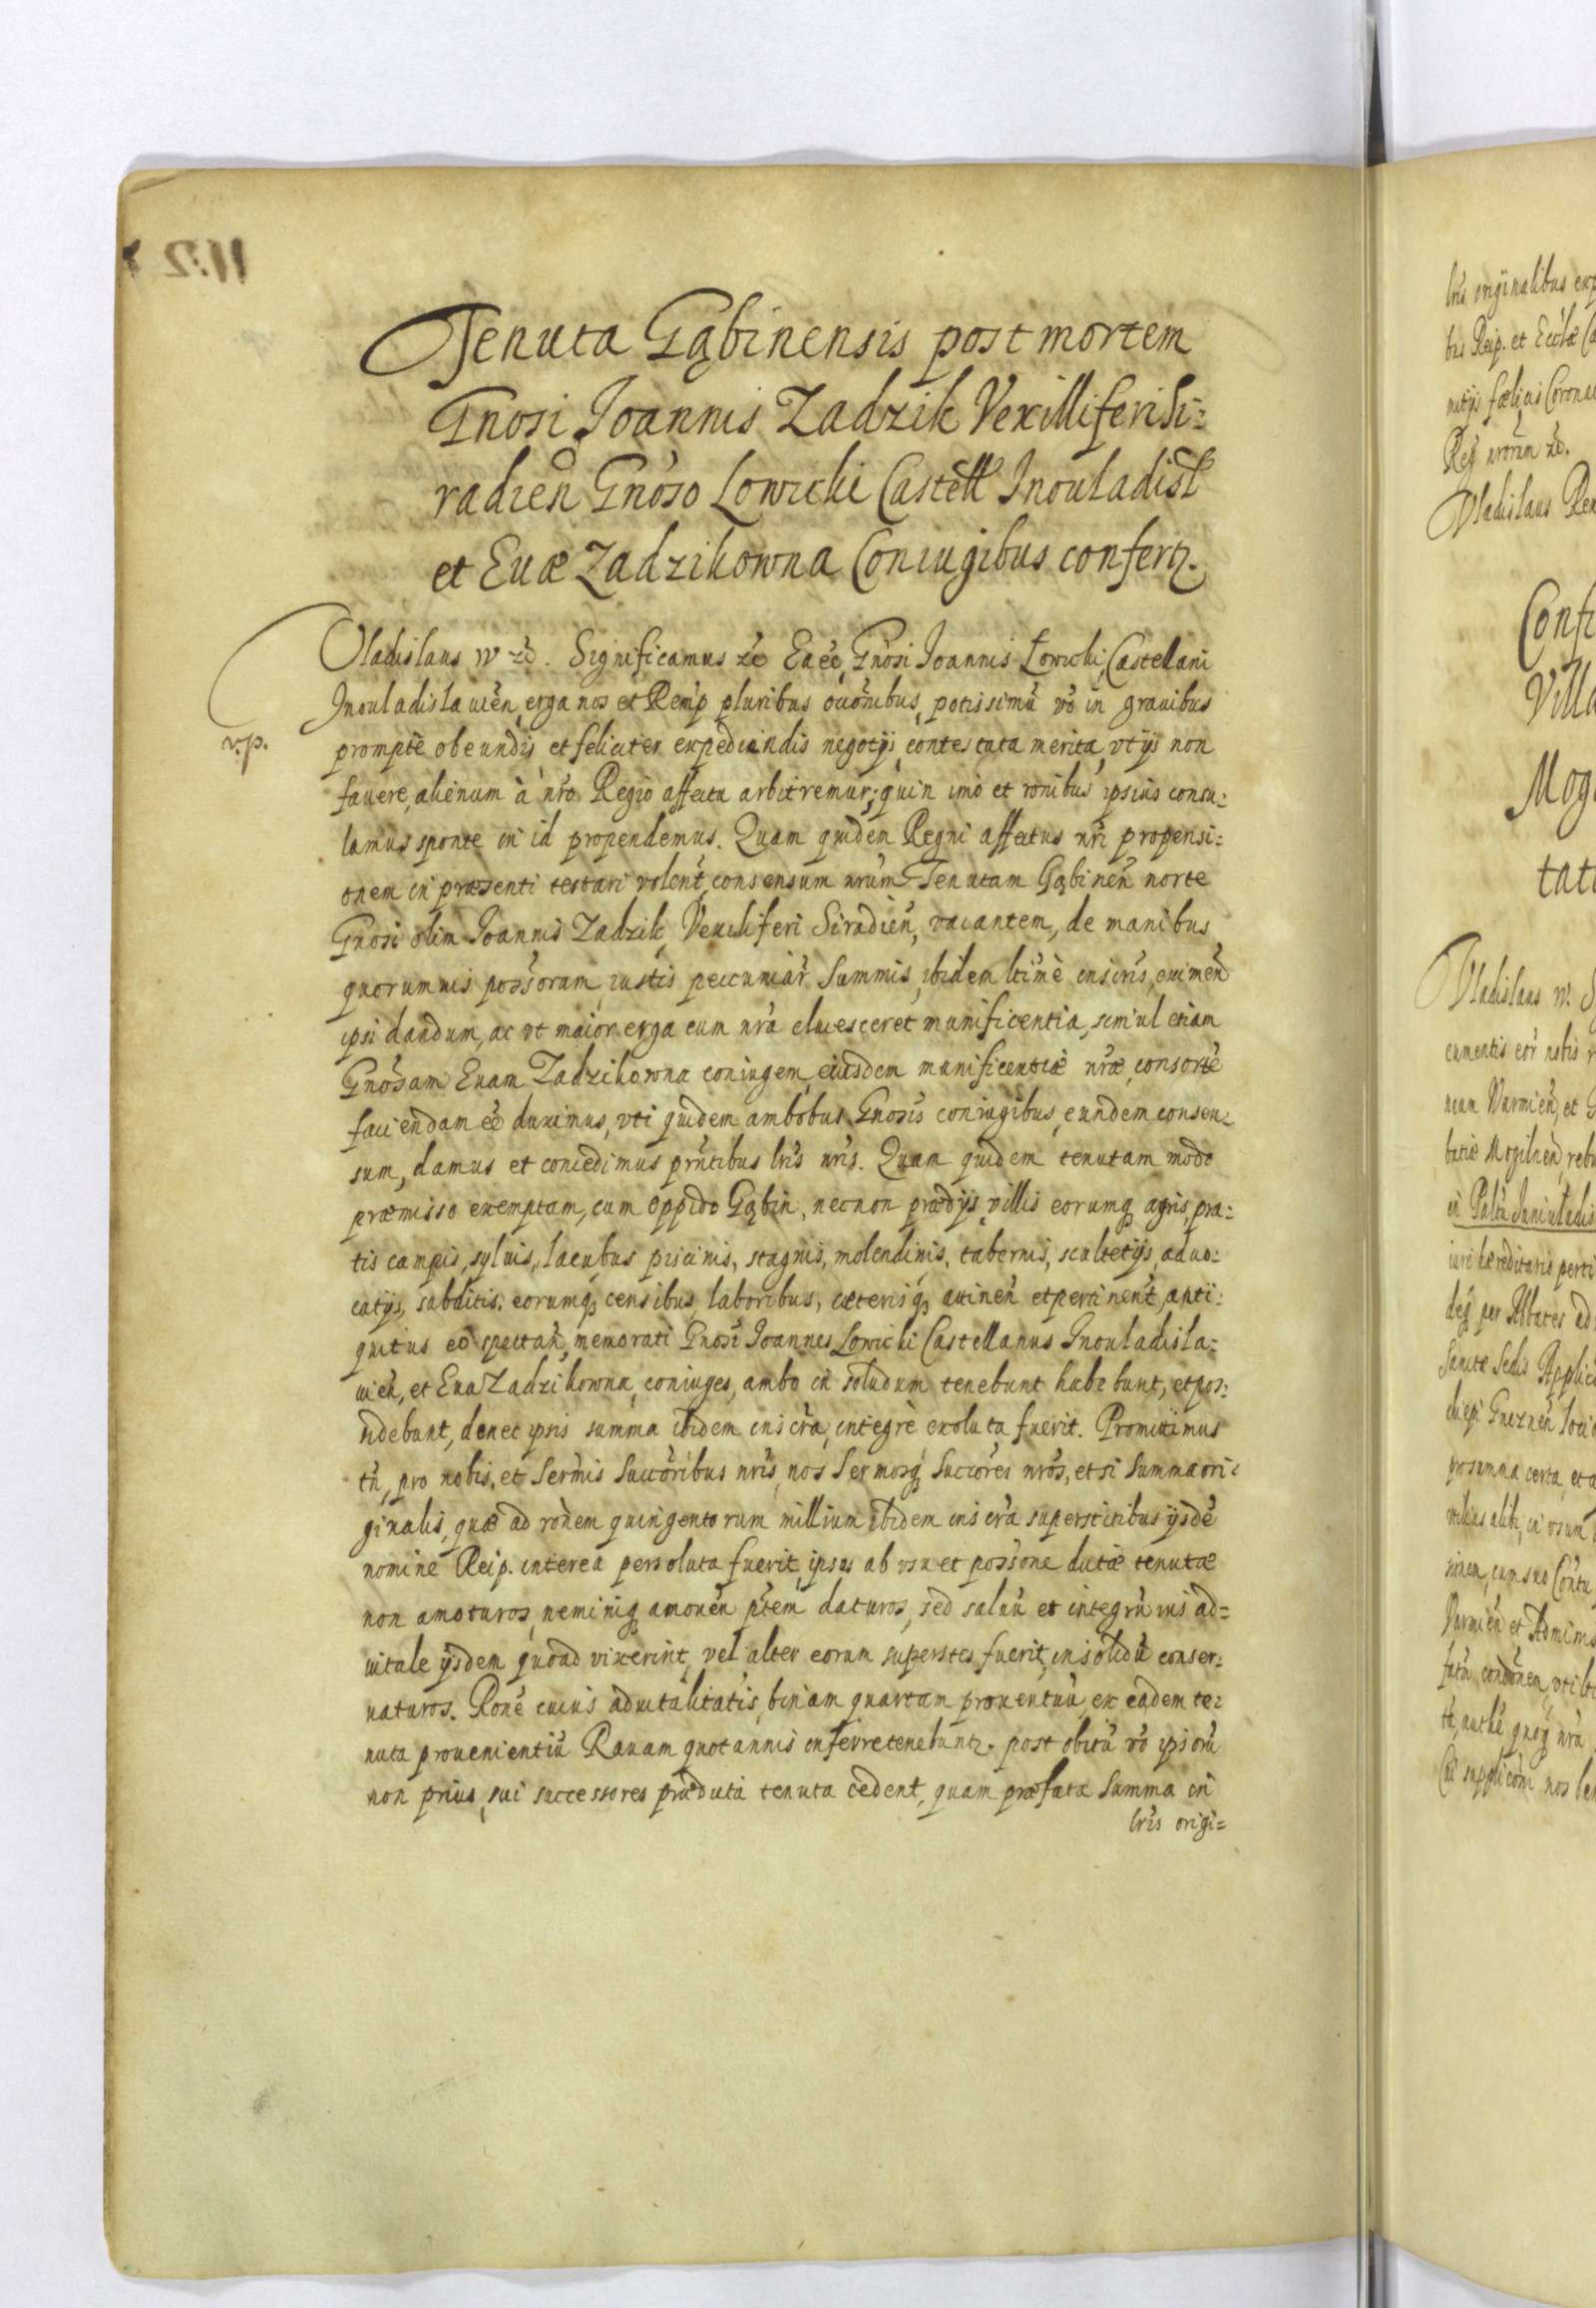 Tenuta Gąbinensis post mortem
Gnosi Joannis Zadzik Vexilliferi Si=
radien̄ Gnoso Lowicki Castell Inouladisl
et Euæ Zadzikowna Coniugibus confertr.
Vladislaus IV etc. Significamus etc Ea eē, Gnosi Joannis Lowicki, Castellani
Inouladislauien̄, erga nos et Remp pluribus occōnibus, potissimū vō in grauibus
v.p.
promptè obeundis et feliciter expediendis negotijs, contestata merita, vt ijs non
fauere, alienum à nrō Regio affectu arbitremur; quin imò et rōnibus ipsius consu=
lamus sponte in id propendemus. Quam quidem Regni affectus nrī propensi=
onem in præsenti testari volent, consensum nrūm Tenutam Gąbinen̄ morte
Gnosi olim Joannis Zadzik, Vexiliferi Siradien̄, vacantem, de manibus
quorumuis possōrum, iustis peccuniar̄ Summis, ibidem ltimè inscris, eximen̄
ipsi dandum, ac vt maior erga eum nrā eluesceret munificentia, simul etiam
Gnosam Euam Zadzikowna coniugem, eiusdem munificentiæ nræ, consortē
faciendam eē duximus, vti quidem ambobus Gnosis coniugibus, eundem consen=
sum, damus et concedimus prn̄tibus lrīs nrīs. Quam quidem tenutam modo
præmisso exemptam, cum oppido Gąbin, necnon prædijs, villis eorumq agris, pra=
tis campis, syluis, lacubus piscinis, stagnis, molendinis, tabernis, scultetijs, aduo=
catijs, subditis, eorumq censibus, laboribus, cæterisq attinen̄ et pertinent, anti=
quitus eo spectan̄, memorati Gnosi Joannes Lowicki Castellanus Inouladisla=
uien̄, et Eua Zadzikowna, coniuges, ambo in solidum tenebunt habebunt, et pos=
sidebunt, donec ipsis summa ibidem inscrā, integrè exoluta fuerit. Promittimus
tn̄, pro nobis, et Sermis Succōribus nrīs, nos Sermosq Succōres nrōs, etsi Summa ori=
ginalis, quæ ad rōnem quingentorum millium ibidem inscrā superstitibus ijsdē
nomine Reip. interea persoluta fuerit, ipsos ab vsu et possōne dictæ tenutæ
non amoturos, neminiq amouen̄ ptem̄ daturos, sed saluū et integrū ius ad=
uitale ijsdem quoad vixerint, vel alter eorum superstes fuerit, in solidū conser=
uaturos. Rōne cuius aduitalitatis, binam quartam prouentuū, ex eadem te=
nuta prouenientiū Rauam quotannis inferre tenebuntr. post obitū vō ipsorū
non prius, sui successores prædicta tenuta cedent, quam præfata Summa in
lrīs origi=
lrīs originalibus
Reip. et
Vladislaus
Confi
Vill
Mogi
tat
Vladislaus